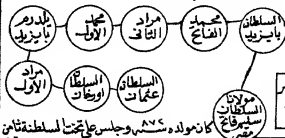 السلطان بايزيد
محمد الفاتح
مراد الثاني
محمد الاول
يلدرم بايزيد
مراد الاول
السلطان اورخان
السلطان عثمان
مولانا السلطان سليم فاتح مصر
كان مولده سنة ٨٧٢ وجلس على تخت السلطنة ثامن